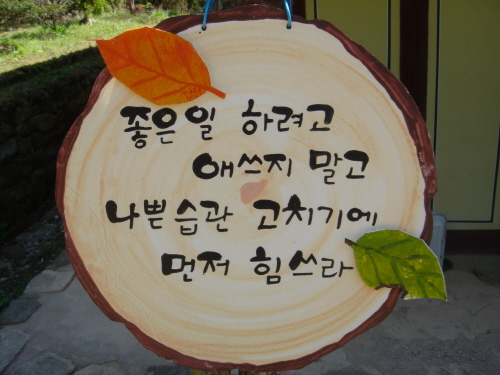 좋은일 하려고
애쓰지 말고
나쁜습관 고치기에
먼저 힘쓰라